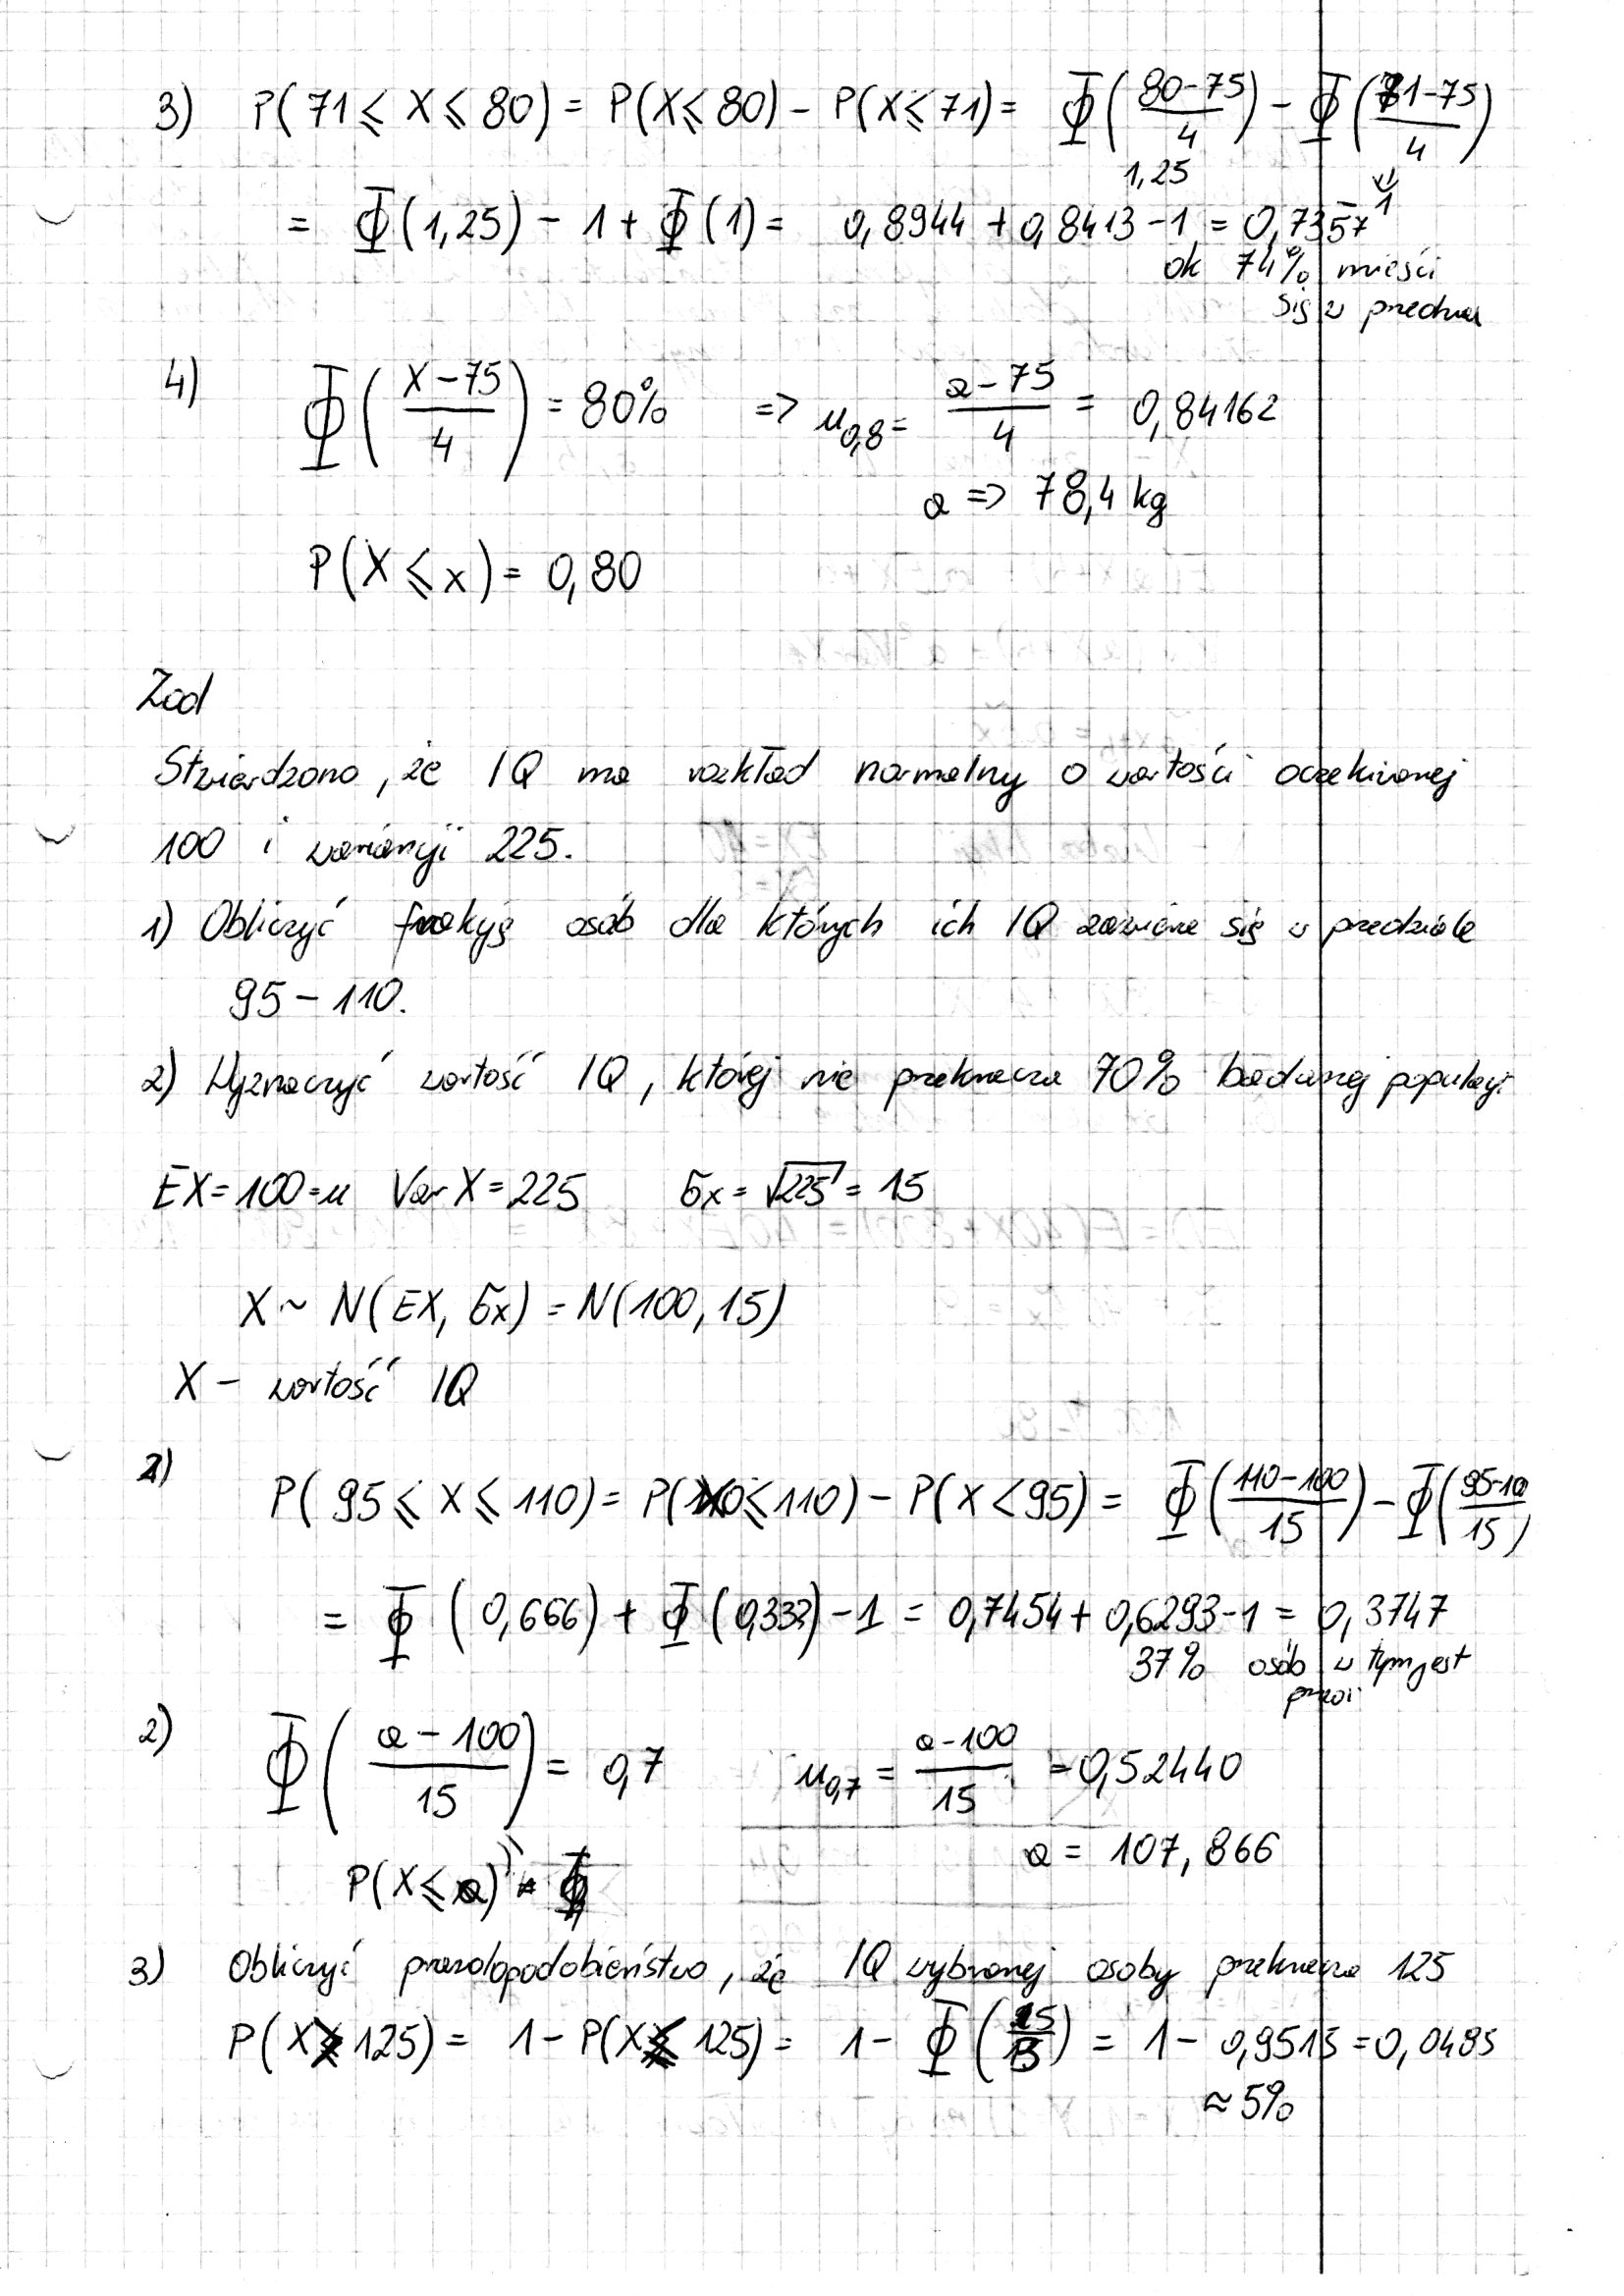 3) P(71 ≤ X ≤ 80) = P(X ≤ 80) - P(X ≤ 71) = Φ((80-75)/4) - Φ((71-75)/4)
1,25 ⇓
-1
= Φ(1,25) - 1 + Φ(1) = 0,8944 + 0,8413 - 1 = 0,7357
ok 74% mieści
się w przedział
4) Φ((X-75)/4) = 80% => u0,8 = (a-75)/4 = 0,84162
a => 78,4 kg
P(X ≤ x) = 0,80
Zad
Stwierdzono, że IQ ma rozkład normalny o wartości oczekiwanej
100 i wariancji 225.
1) Obliczyć frakcję osób dla których ich IQ zawiera się w przedziale
95 - 110.
2) Wyznaczyć wartość IQ, której nie przekracza 70% badanej populacji
EX = 100 = u Var X = 225 σx = √225 = 15
X ~ N(EX, σx) = N(100, 15)
X - wartość IQ
1)
P(95 ≤ X ≤ 110) = P( ≤ 110) - P(X < 95) = Φ((110-100)/15) - Φ((95-10/15)
= Φ(0,666) + Φ(0,333) - 1 = 0,7454 + 0,6293 - 1 = 0,3747
37% osób w tym jest
2) Φ((a-100)/15) = 0,7 u0,7 = (a-100)/15 = 0,52440
a = 107,866
P(X ≤ a)
3) Obliczyć prawdopodobieństwo, że IQ wybranej osoby przekracza 125
P(X > 125) = 1 - P(X ≤ 125) = 1 - Φ(25/15) = 1 - 0,9515 = 0,0485
≈ 5%